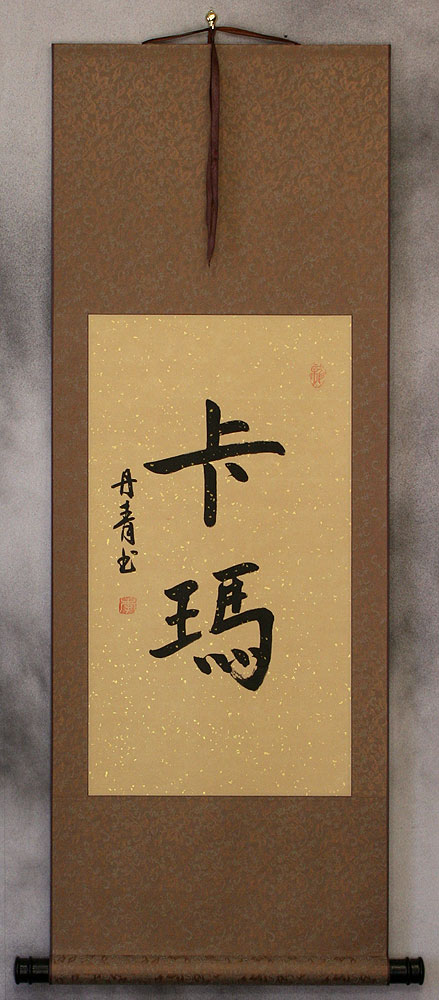 卡瑪
丹青书